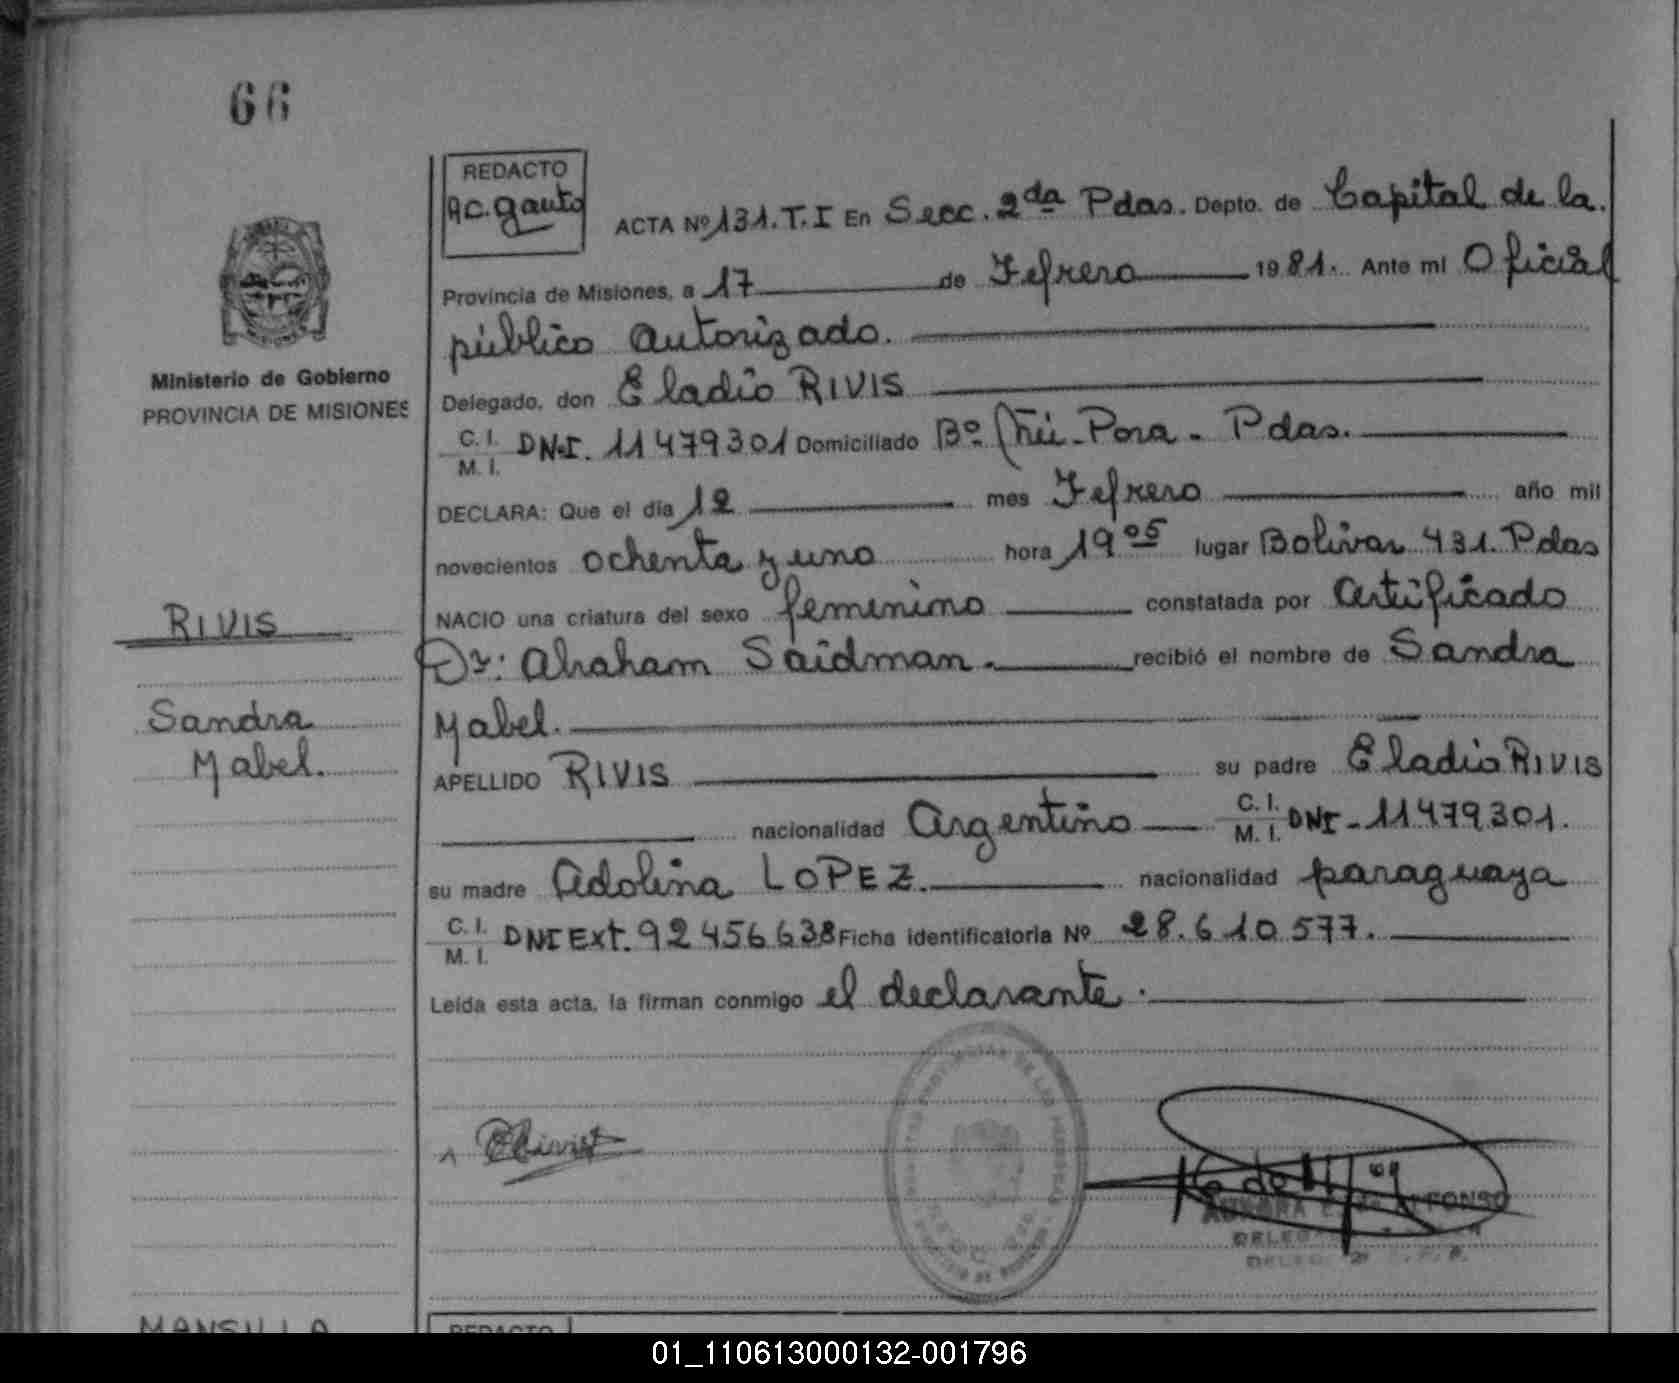 66
REDACTO
Ac. Gauto
ACTA Nº 131. T. I En Secc. 2da Pdas. Depto. de Capital de la.
Provincia de Misiones, a 17 de Febrero 1981. Ante mí Oficial
público autorizado.
Delegado, don Eladio RIVIS
C. I.
M. I. DN.I. 11479301 Domiciliado Bº Pora - Pdas.
DECLARA: Que el día 12 mes Febrero año mil
novecientos ochenta y uno hora 19 05 lugar Bolivar 431. Pdas
NACIO una criatura del sexo femenino constatada por certificado
Dr: Abraham Saidman. recibió el nombre de Sandra
Mabel.
APELLIDO RIVIS su padre Eladio RIVIS
nacionalidad Argentino C. I.
M. I. DNI - 11479301.
su madre Adolina LOPEZ. nacionalidad paraguaya
C. I.
M. I. DNI Ext. 92456638 Ficha identificatoria Nº 28.610577.
Leída esta acta, la firman conmigo el declarante.
Ministerio de Gobierno
PROVINCIA DE MISIONES
RIVIS
Sandra
Mabel.
AURORA E. de ALFONSO
MANSILLA
REDACTO
01_110613000132-001796